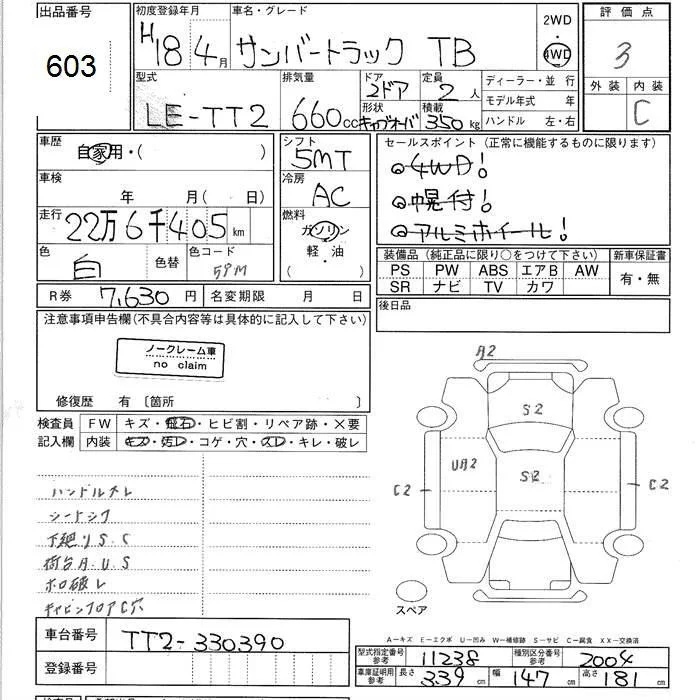 出品番号 初度登録年月 車名・グレード 2WD 4WD 評価点
603 H18 4月 サンバートラック TB 3
型式 排気量 ドア 定員 ディーラー・並行 外装 内装
LE-TT2 660cc 2ドア 2人 モデル年式 年 C
形状 積載 ハンドル 左・右
キャブオーバ 350kg
車歴 自家用・( ) シフト 5MT セールスポイント(正常に機能するものに限ります)
車検 年 月( 日) 冷房 AC ◎4WD!
◎幌付!
走行 22万6千405km 燃料 ガソリン ◎アルミホイール!
軽・油
( )
色 白 色替 色コード 51M 装備品(純正品に限り○をつけて下さい) 新車保証書
PS PW ABS エアB AW 有・無
SR ナビ TV カワ
R券 7,630円 名変期限 月 日 後日品
注意事項申告欄(不具合内容等は具体的に記入して下さい)
ノークレーム車
no claim
修復歴 有 〔箇所 〕
検査員 FW キズ・飛石・ヒビ割・リペア跡・×要
記入欄 内装 キズ・汚レ・コゲ・穴・スレ・キレ・破レ
ハンドルスレ
シートシワ
下廻りS.C
荷台A.U.S
ホロ破レ
キャビンフロアC穴
A2
S2
UA2 S2
C2 C2
スペア
A-キズ E-エクボ U-凹み W-補修跡 S-サビ C-腐食 XX-交換済
車台番号 TT2-330390
登録番号
型式指定番号 参考 11238 種別区分番号 参考 2004
車庫証明用 参考 長さ 339cm 幅 147cm 高さ 181cm